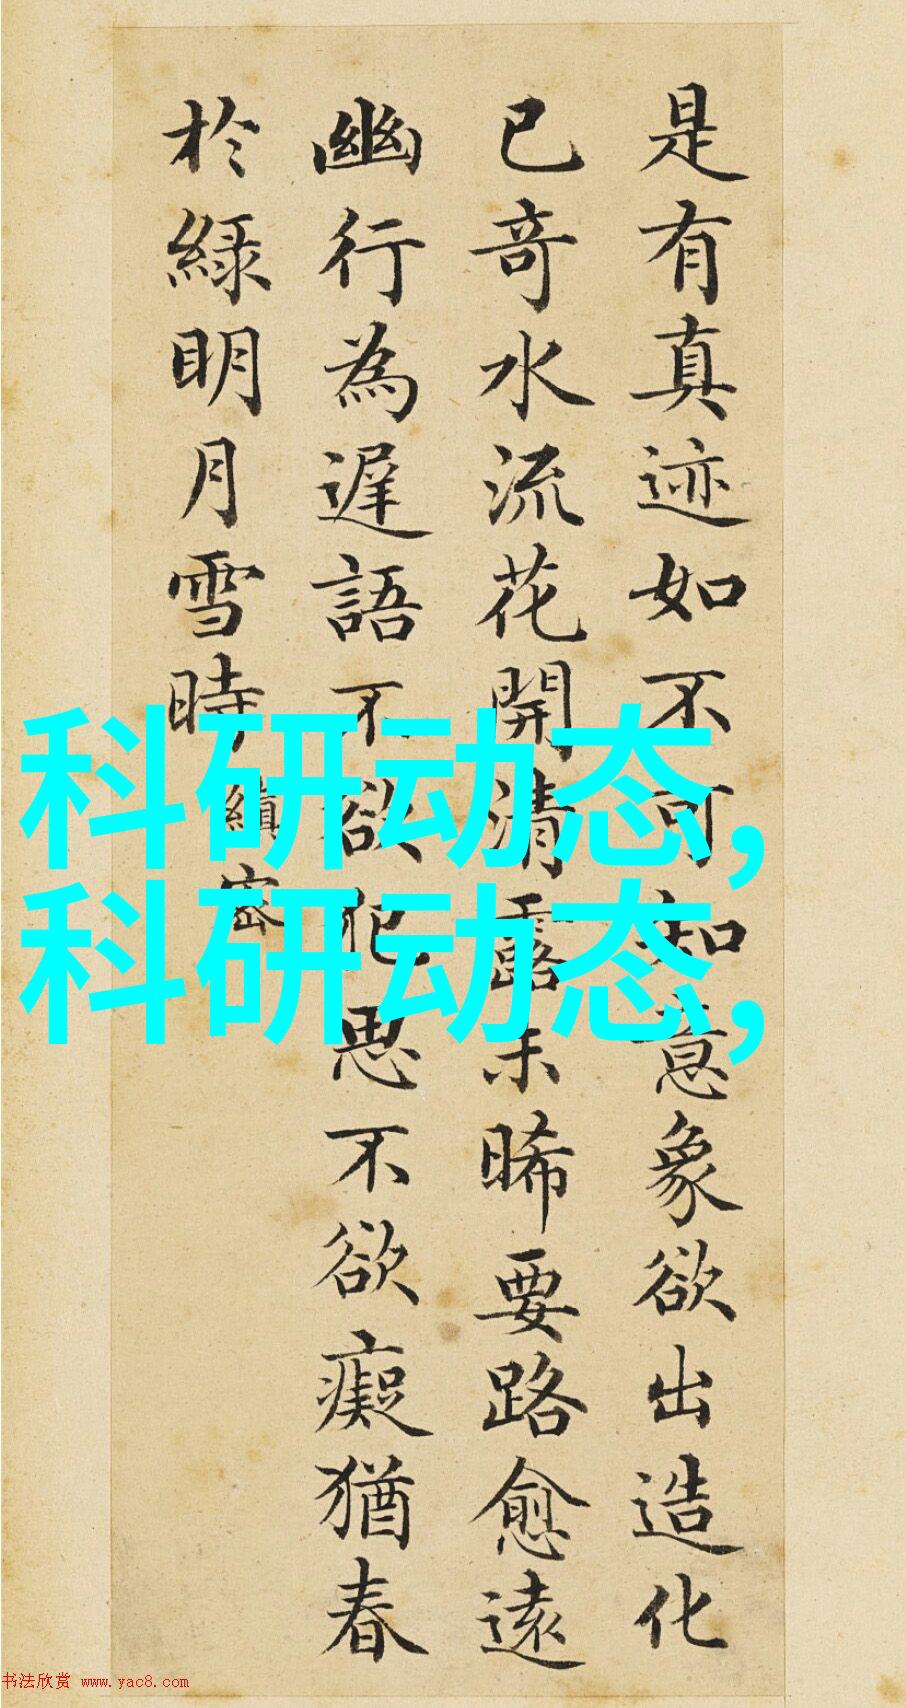 是有真迹如不可知意象欲出造化
已奇水流花開清露未晞要路愈遠
幽行為遲語不欲犯思不欲癡猶春
於綠明月雪時 縝密
科研动态,
科研动态,
书法欣赏 www.yac8.com